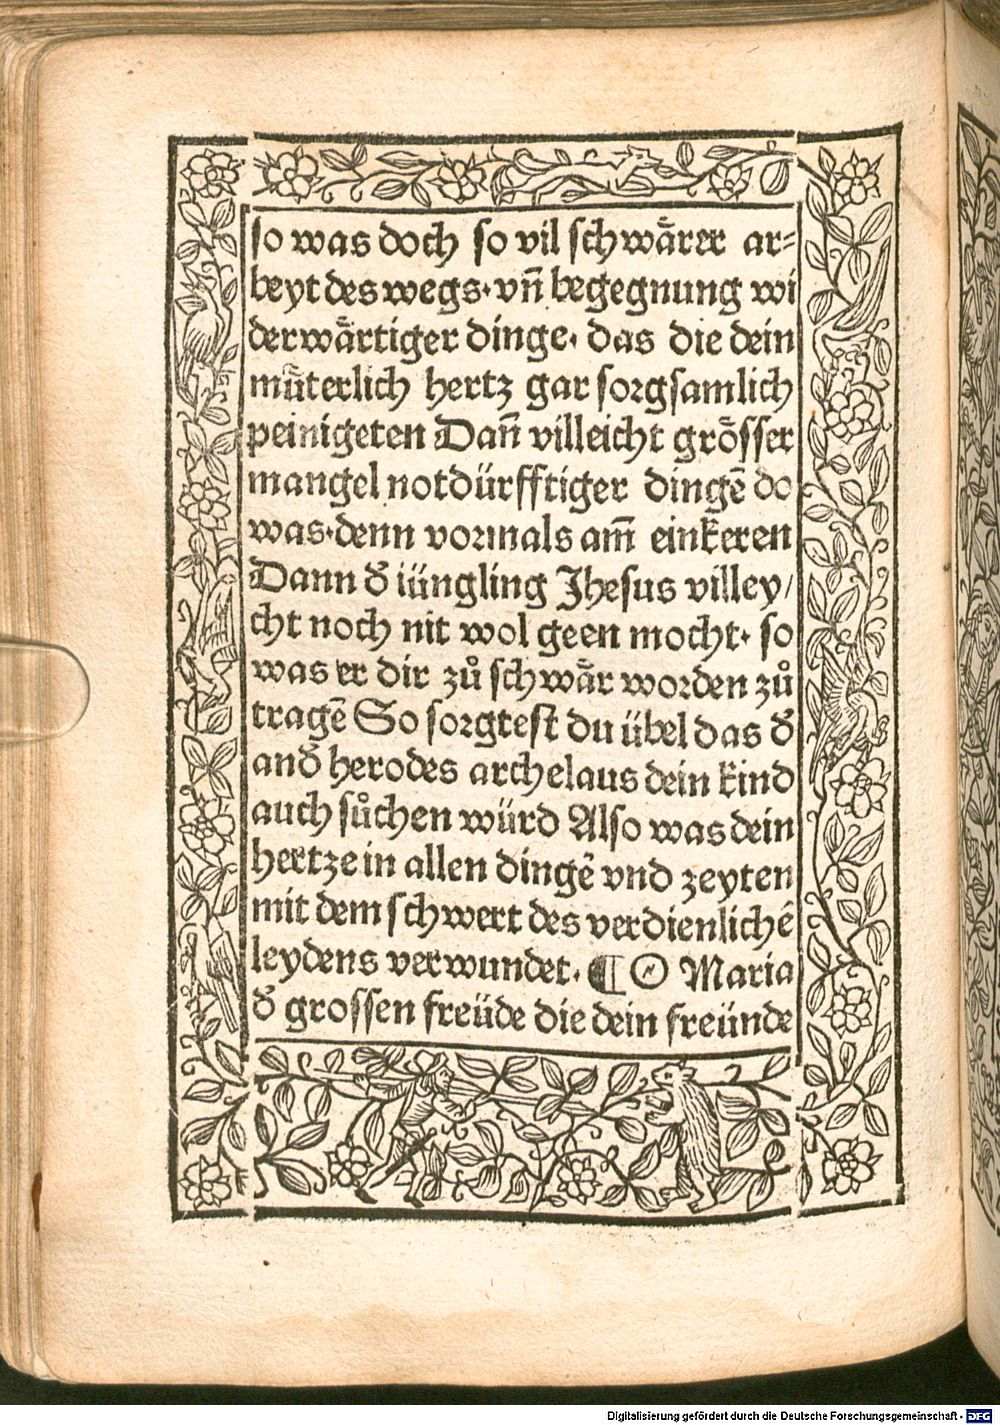 so was doch so vil schwårer ar⸗
beyt des wegs. vn̄ begegnung wi
derwårtiger dinge. das die dein
mu̎terlich hertz gar sorgsamlich
peinigeten Dan̄ villeicht grősser
mangel notdürfftiger dingē do
was. denn vormals am̄ einkeren
Dann d̕ iüngling Jhesus villey/
cht noch nit wol geen mocht. so
was er dir zů schwår worden zů
tragē So sorgtest du übel das d̕
and̕ herodes archelaus dein kind
auch sůchen würd Also was dein
hertze in allen dingē vnd zeyten
mit dem schwert des verdienlichē
leydens verwundet. ¶ O Maria
d̕ grossen freüde die dein freünde
Digitalisierung gefördert durch die Deutsche Forschungsgemeinschaft - DFG